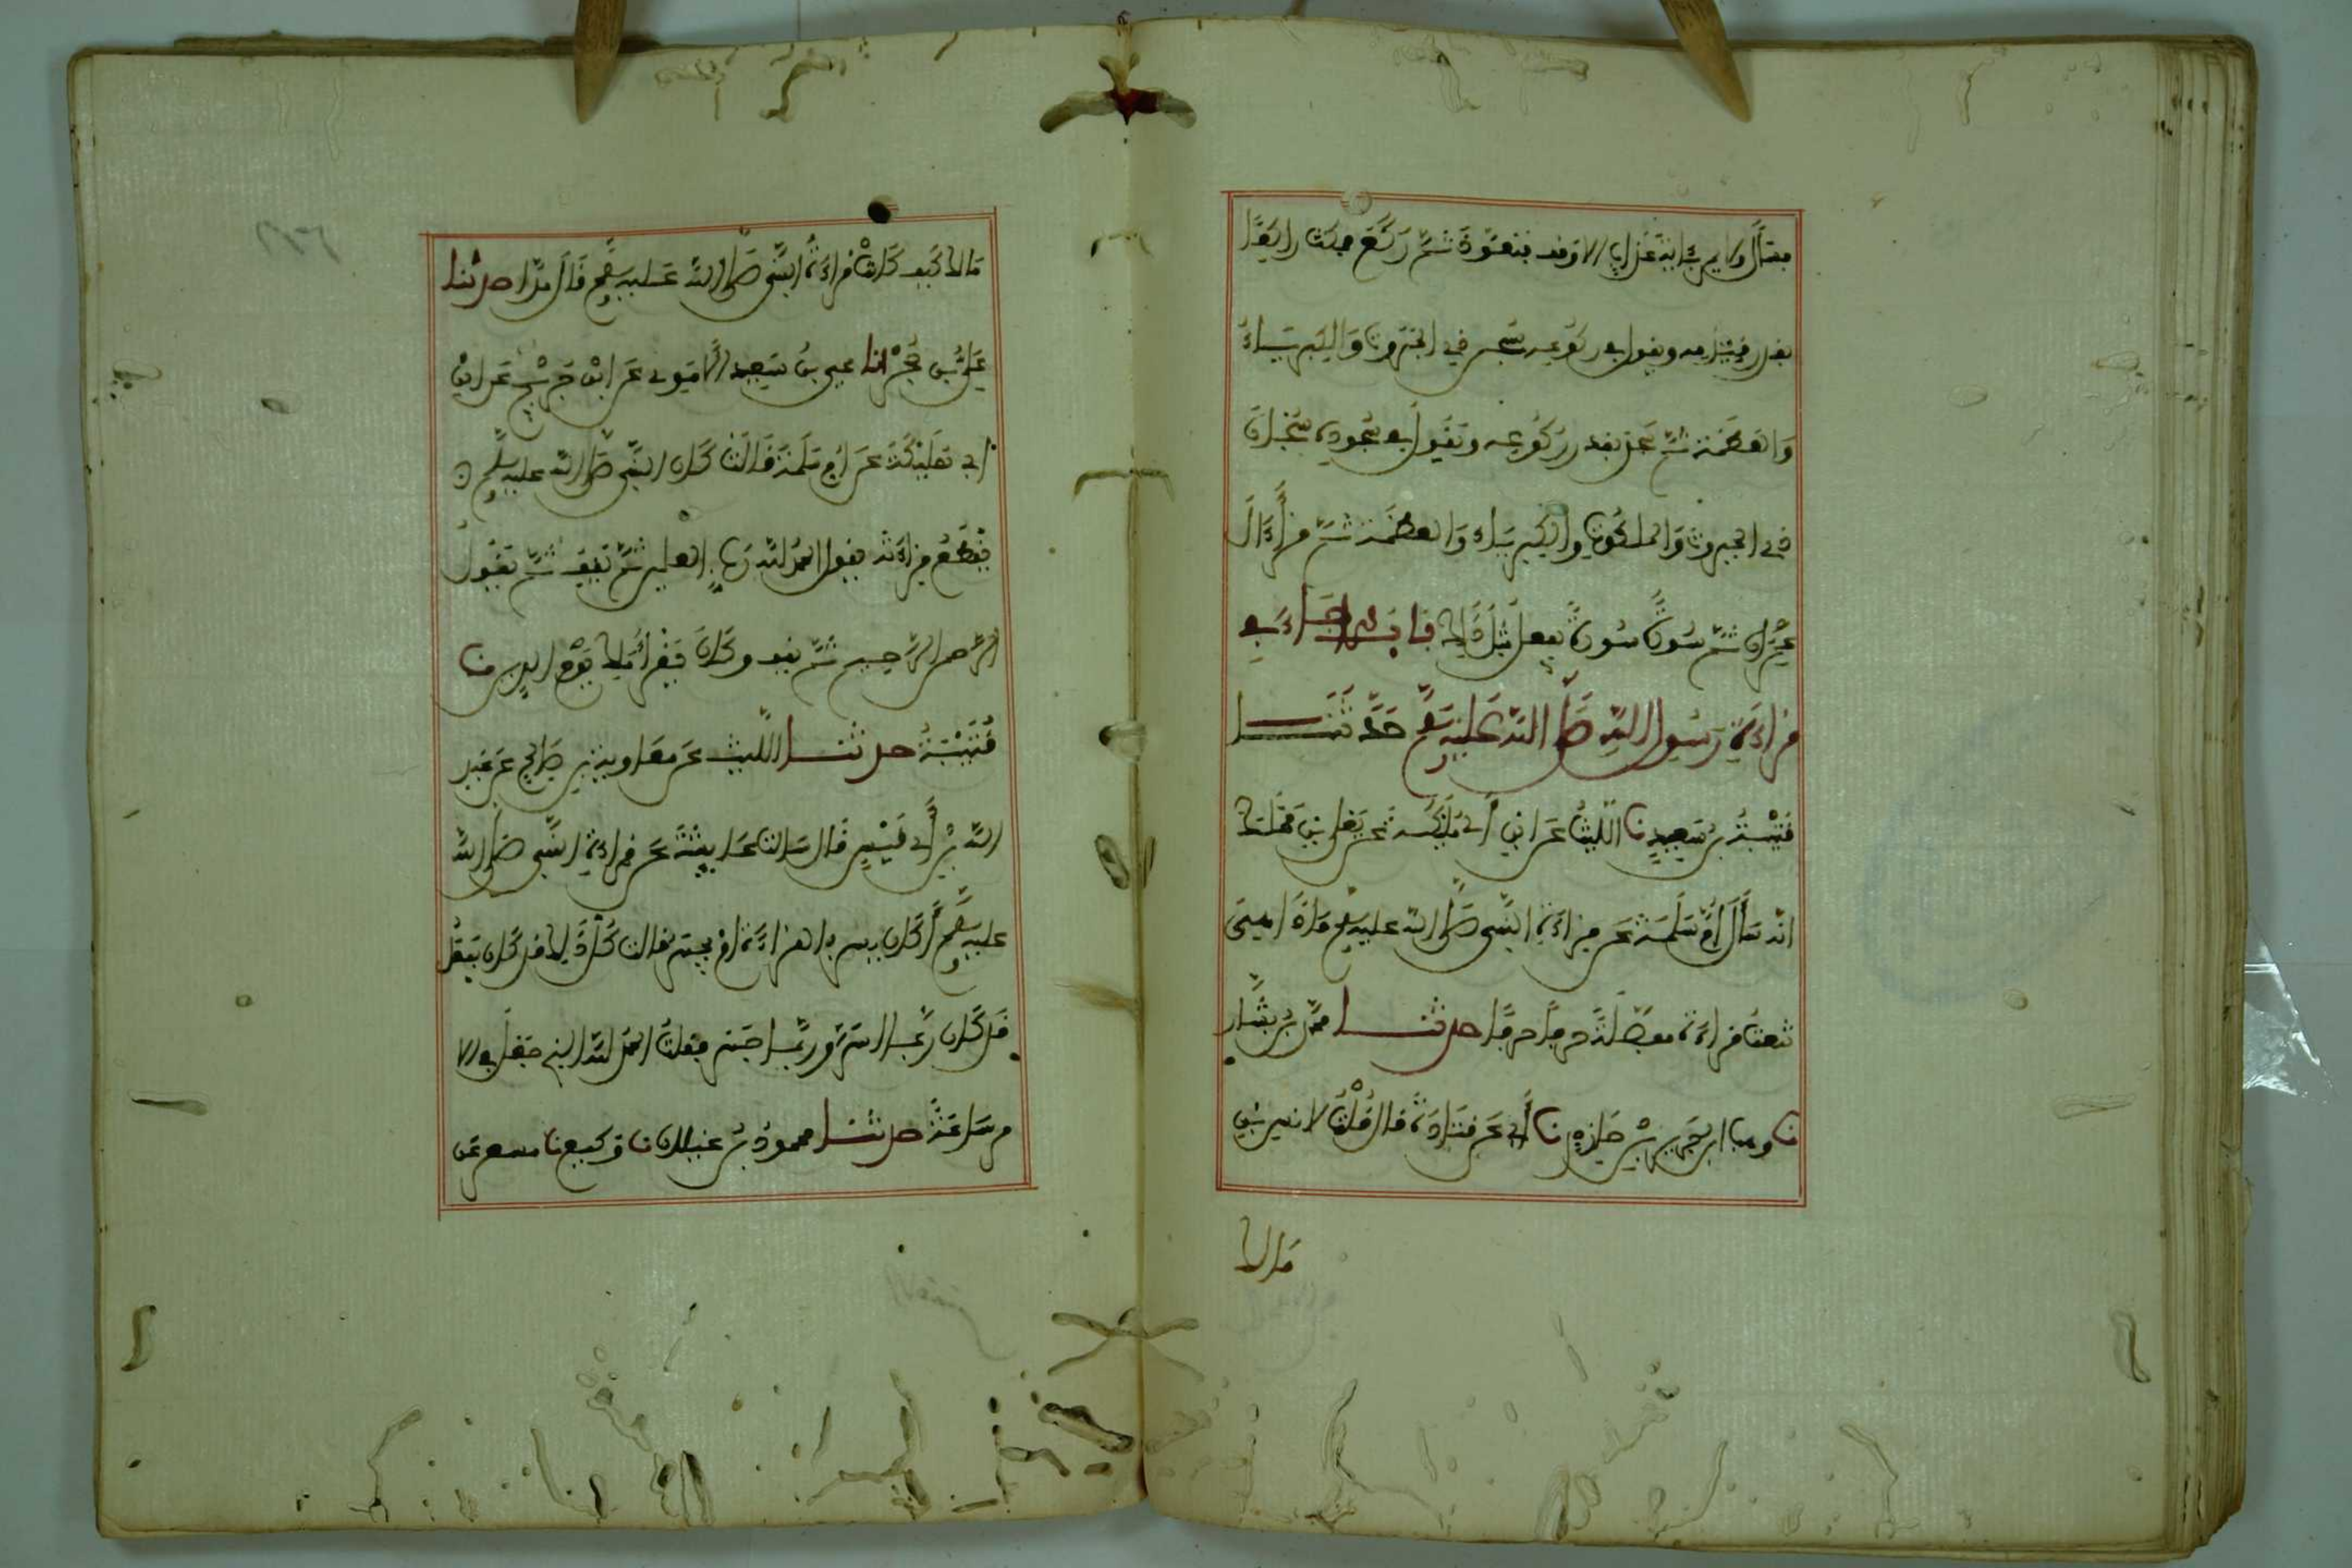 فسأل ولا يمر بآية عذاب الا وقف فتعوذ ثم ركع فمكث راكعا
بقدر قيامه ويقول في ركوعه سبحن ذي الجبروت والكبرياء
والعظمة ثم سجد بقدر ركوعه ويقول في سجوده سبحان
ذي الجبروت والملكوت والكبرياء والعظمة ثم قرأ ءال
عمران ثم سورة سورة يفعل مثل ذلك باب ما جاء في
قراءة رسول الله صلى الله عليه وسلم حدثنا
قتيبة بن سعيد نا الليث عن ابن أبي مليكة عن يعلى بن مملك
انه سأل أم سلمة عن قراءة النبي صلى الله عليه وسلم فاذا هي
تنعت قراءة مفصلة حرفا حرفا حدثنا محمد بن بشار
نا وهب ابن جرير بن حازم نا أبي عن قتادة قال قلت لانس بن
مالك
مالك كيف كانت قراءة النبي صلى الله عليه وسلم قال مدا حدثنا
علي بن حجر انا يحيى بن سعيد الأموي عن ابن جريج عن ابن
أبي مليكة عن أم سلمة قالت كان النبي صلى الله عليه وسلم
يقطع قراءته يقول الحمد لله رب العلمين ثم يقف ثم يقول
الرحمن الرحيم ثم يقف وكان يقرأ ملك يوم الدين نا
قتيبة حدثنا الليث عن معاوية بن صالح عن عبد
الله بن أبي قيس قال سالت عايشة عن قراءة النبي صلى الله
عليه وسلم أكان يسر بالقراءة ام يجهر قالت كل ذلك قد كان يفعل
قد كان ربما اسر وربما جهر فقلت الحمد لله الذي جعل في الا
مر سعة حدثنا محمود بن غيلان نا وكيع نا مسعر عن